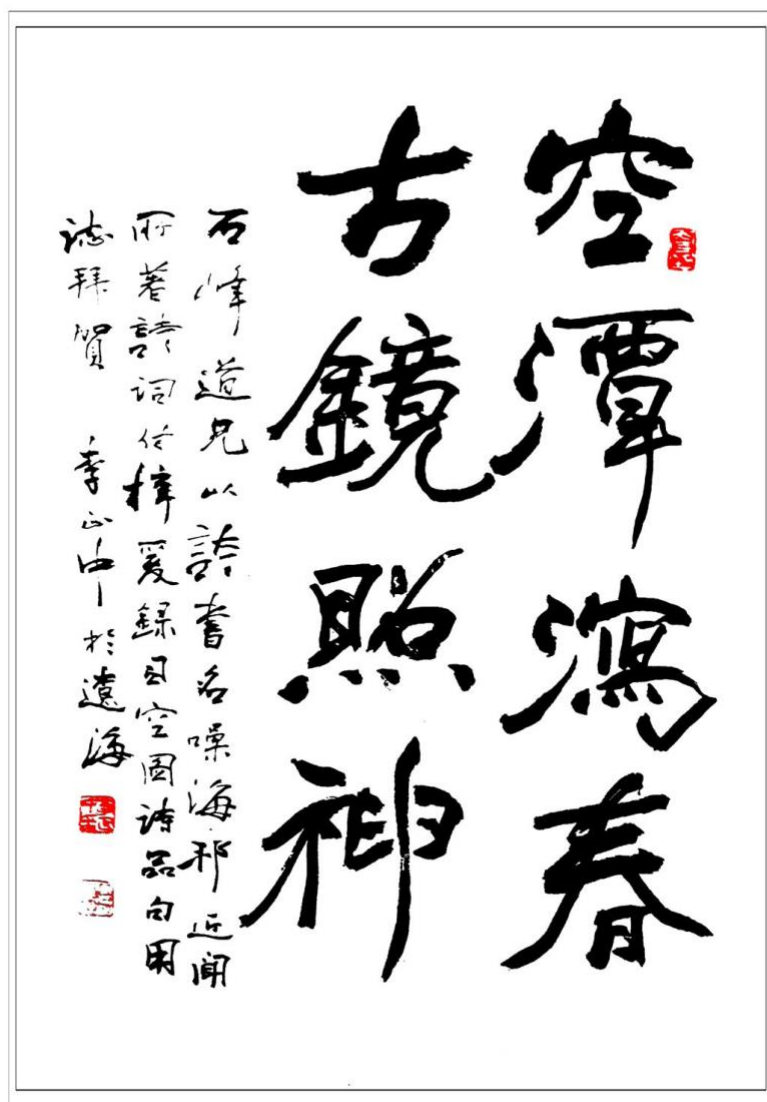 空潭瀉春
古鏡照神
石峰道兄以詩書名噪海邦近聞
所著詩詞付梓爰録司空圖詩品句用
誌拜賀 李正中於遼海